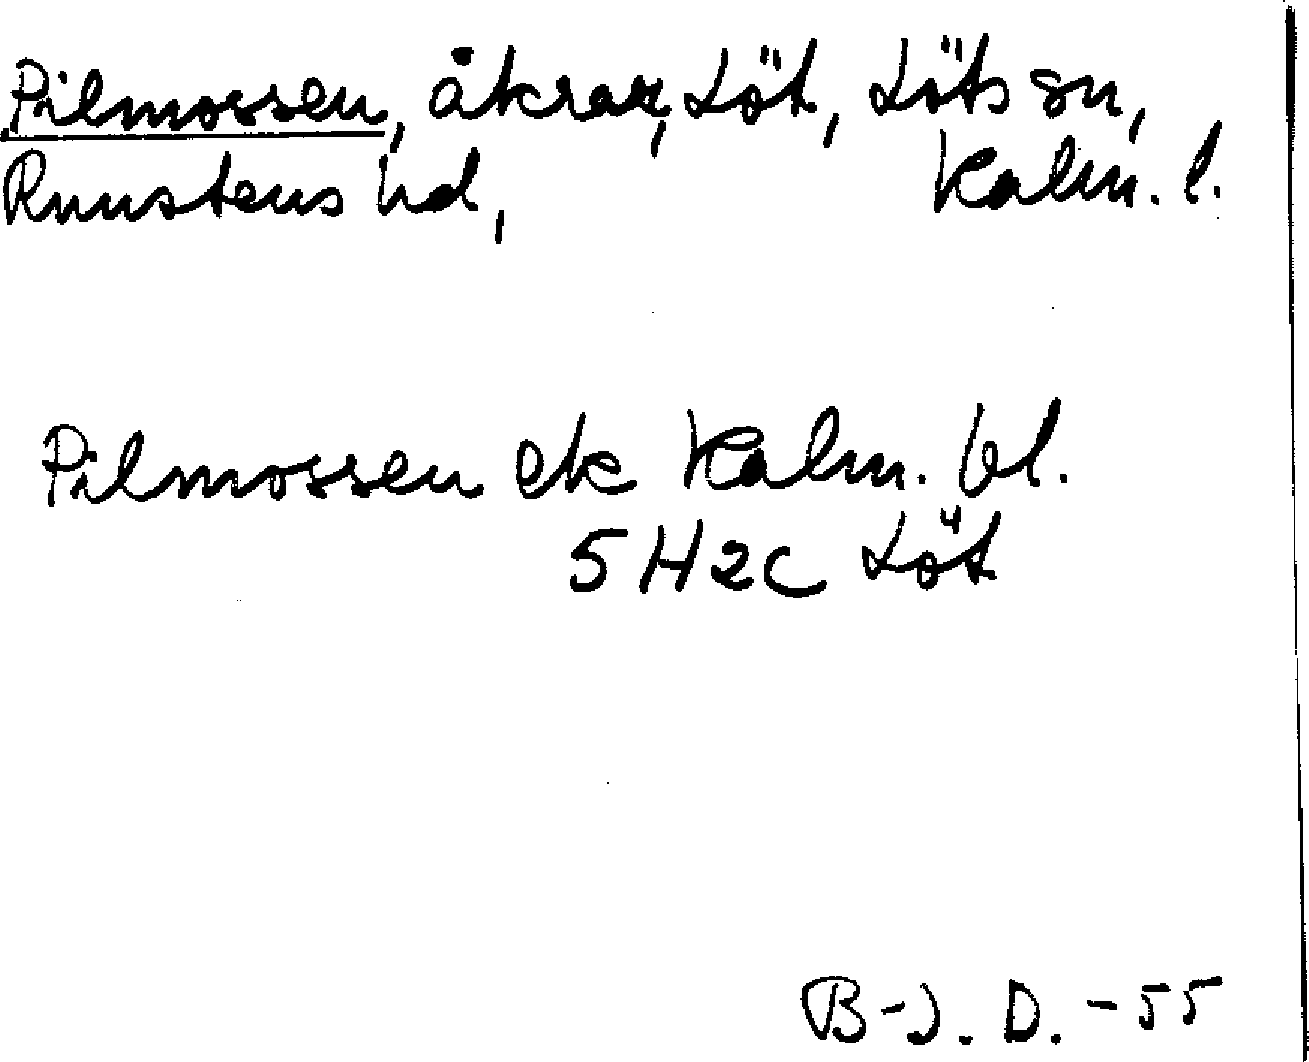 Pilmossen, åkrar, Löt, Löts sn,
Runstens hd, Kalm. l.
Pilmossen ek Kalm. bl.
5H2C Löt
B-J. D. -55